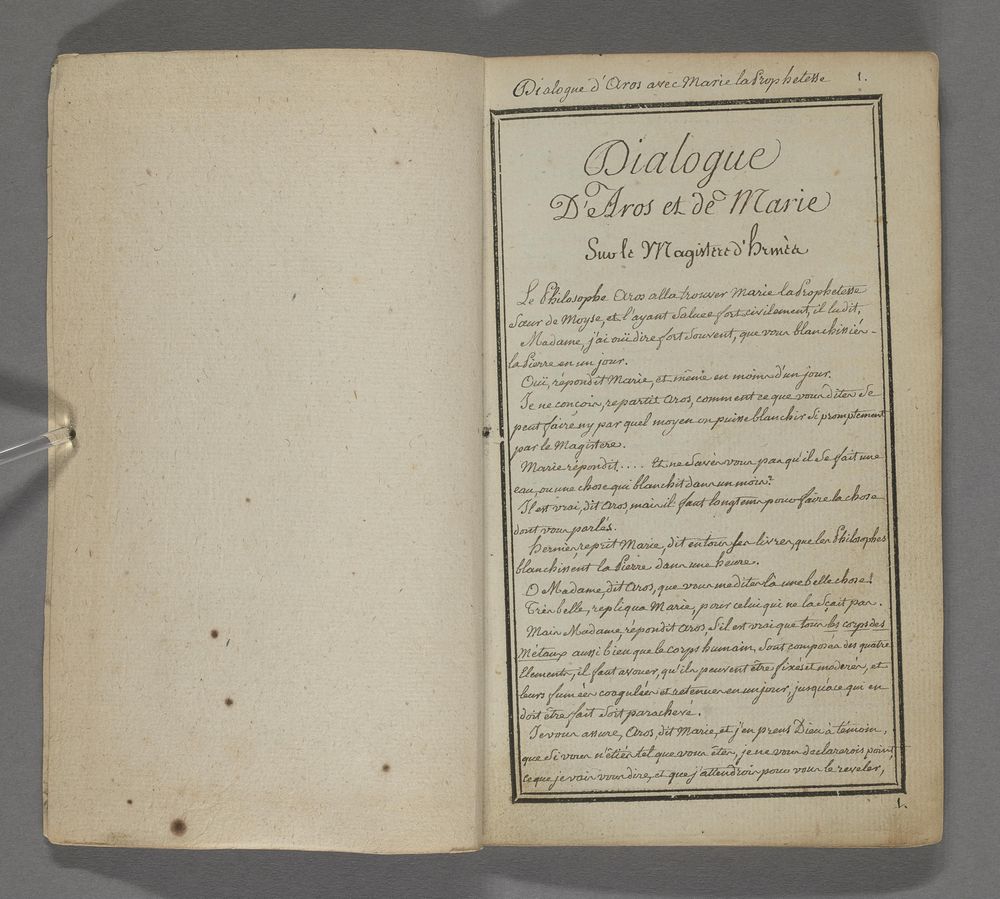 Dialogue d'Aros avec Marie la Prophetesse 1.
Dialogue
D'Aros et de Marie
Sur le Magistere d'hermès
Le Philosophe Aros alla trouver Marie la Prophetesse
Sœur de Moyse, et l'ayant saluee fort civilement, il lui dit.
Madame, j'ai ouï dire fort souvent, que vous blanchissiés
la Pierre en un jour.
Oui, répondit Marie, et même en moins d'un jour.
Je ne conçois, repartit Aros, comment ce que vous dites se
peut faire ny par quel moyen on puisse blanchir si promptement
par le Magistere.
Marie répondit.... Et ne savés vous pas qu'il se fait une
eau, ou une chose qui blanchit dans un mois?
Il est vrai, dit Aros, mais il faut longtems pour faire la chose
dont vous parlés.
hermes, reprit Marie, dit en tous ses livres, que les Philosophes
blanchissent la Pierre dans une heure.
O Madame, dit Aros, que vous me dites là une belle chose!
Très belle, repliqua Marie, pour celui qui ne la scait pas.
Mais Madame, répondit Aros, s'il est vrai que tous les corps des
Métaux aussi bien que le corps humain, sont composés des quatre
Elements, il faut avouer, qu'ils peuvent être fixes et moderés, et
leurs fumées coagulées et retenues en un jour, jusqu'à ce qui en
doit être fait soit parachevé.
Je vous assure, Aros, dit Marie, et j'en prens Dieu à témoin,
que si vous n'étiés tel que vous êtes, je ne vous declarerois point
ce que je vais vous dire, et que j'attendrois pour vous le reveler,
1.